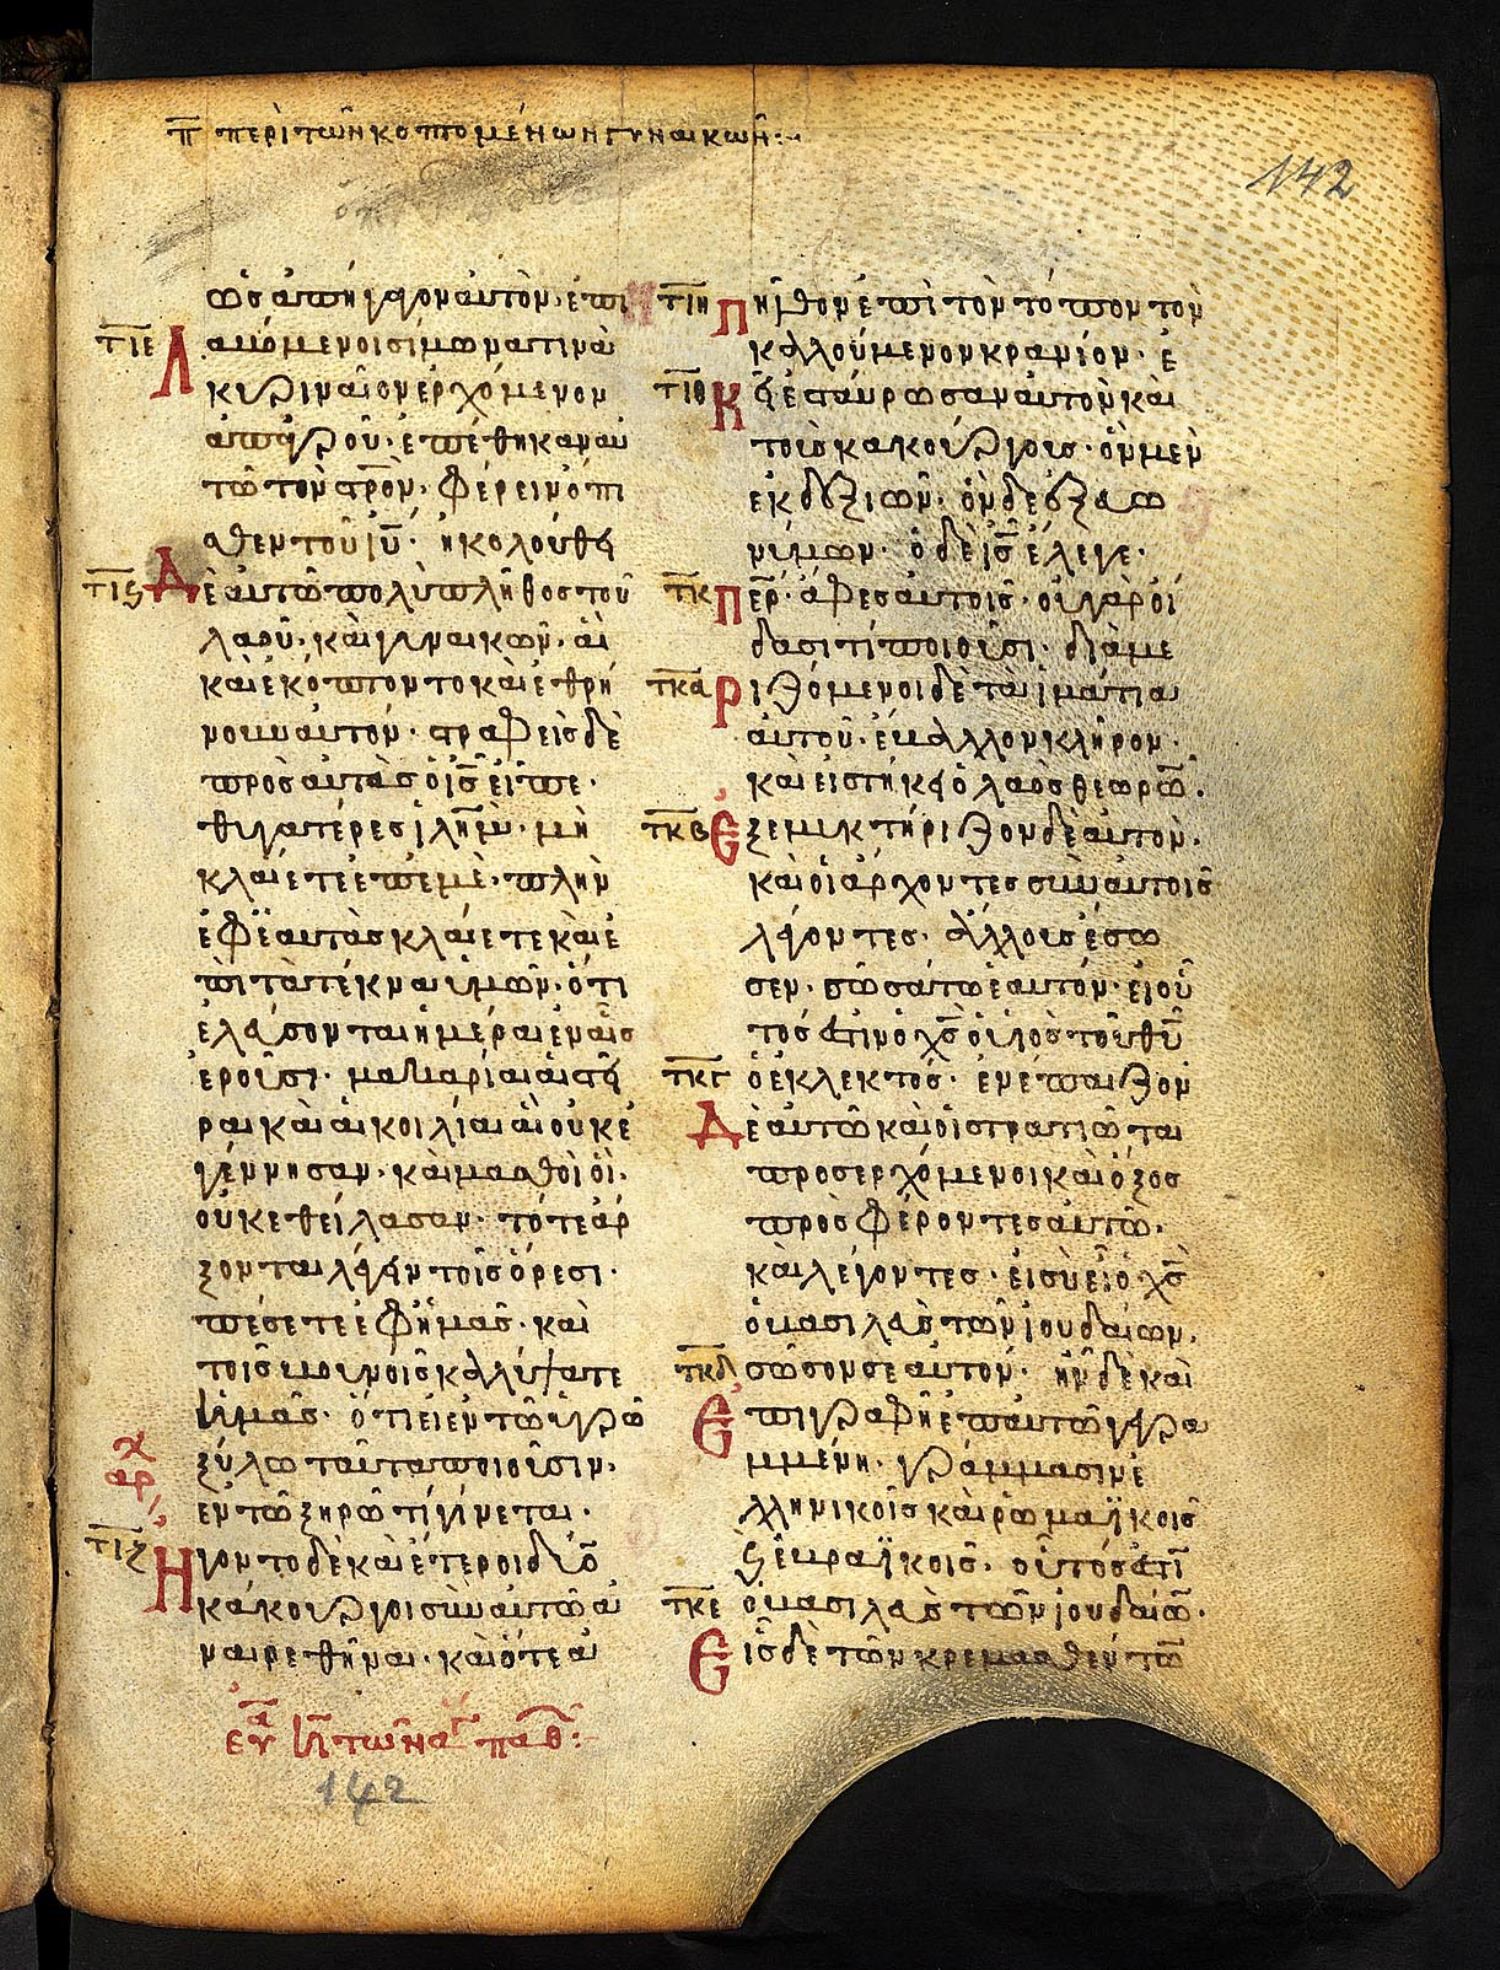 π̅ περὶ τῶν κοπτομένων γυναικῶν:
142
ὡς ἀπήγαγον αὐτὸν· ἐπι
τιε Λ αβόμενοι σίμωνά τινα
κυριναῖον ἐρχόμενον
ἀπ ἀγροῦ· ἐπέθηκαν αυ
τῶ τὸν σ̅ρ̅ο̅ν· φέρειν ὄπι
σθεν τοῦ ι̅υ̅· ἠκολούθει
τις Δ ὲ αὐτῶ πολὺ πλῆθος τοῦ
λαοῦ· καὶ γυναικῶν· αἳ
καὶ ἐκόπτοντο καὶ ἐθρή
νουν αὐτόν· στραφεὶς δὲ
πρὸς αὐτὰς ὁ ι̅ς̅ εἶπε·
θυγατέρες ι̅λ̅η̅μ̅· μὴ
κλαίετε ἐπ ἐμὲ· πλὴν
ἐφ ἑαυτὰς κλαίετε καὶ ἐ
πὶ τὰ τέκνα ὑμῶν· ὅτι
ἐλεύσονται ἡμέραι ἐν αἷς
ἐροῦσι· μακάριαι αἱ στεῖ
ραι καὶ αἱ κοιλίαι αἳ οὐκ ἐ
γέννησαν· καὶ μασθοὶ οἳ
οὐκ ἐθείλασαν· τότε ἄρ
ξονται λέγειν τοῖς ὄρεσι·
πέσετε ἐφ ἡμᾶς· καὶ
τοῖς βουνοῖς καλύψατε
ἡμᾶς· ὅτι εἰ ἐν τῶ ὑγρῶ
ξύλω ταῦτα ποιοῦσιν·
ἐν τῶ ξηρῶ τί γίνεται·
χ
αρ,
τιζ Η γοντο δὲ καὶ ἕτεροι δύο
κακοῦργοι σὺν αὐτῶ ἀ
ναιρεθῆναι· καὶ ὅτε ἀ
τιη Π ῆλθον ἐπὶ τὸν τόπον τὸν
καλούμενον κρανίον· ἐ
τιθ Κ εῖ ἐσταύρωσαν αὐτὸν καὶ
τοὺς κακούργους· ὃν μὲν
ἐκ δεξιῶν· ὃν δὲ ἐξ εὐω
νύμων· ὁ δὲ ι̅ς̅ ἔλεγε·
τκ Π ε̅ρ̅· ἄφες αὐτοῖς· οὐ γὰρ οἴ
δασι τί ποιοῦσι· διαμε
τκα Ρ ιζόμενοι δὲ τὰ ἱμάτια
αὐτοῦ· ἔβαλλον κλῆρον·
καὶ εἱστήκει ὁ λαὸς θεωρῶ̅·
τκβ Ε ξεμυκτήριζον δὲ αὐτὸν·
καὶ οἱ ἄρχοντες σὺν αὐτοῖς
λέγοντες· ἄλλους ἔσω
σεν· σωσάτω ἑαυτόν· εἰ οὗ
τός ἐστιν ὁ χ̅ς̅ ὁ υἱὸς τοῦ θ̅υ̅
τκγ ὁ ἐκλεκτός· ἐνέπαιζον
Δ ὲ αὐτῶ καὶ οἱ στρατιῶται
προσερχόμενοι καὶ ὄξος
προσφέροντες αὐτῶ·
καὶ λέγοντες· εἰ σὺ εἶ ὁ χ̅ς̅
ὁ βασιλεὺς τῶν ἰουδαίων·
τκδ σῶσον σεαυτόν· ἦν δὲ καὶ
Ε πιγραφὴ ἐπ αυτῶ γεγρα
μμένη· γράμμασιν ἑ
λληνικοῖς καὶ ῥωμαϊκοῖς
ϛ ἑβραϊκοῖς· οὗτός ἐστι̅
τκε ὁ βασιλεὺς τῶν ἰουδαίω̅·
Ε ἷς δὲ τῶν κρεμασθέντω̅
142